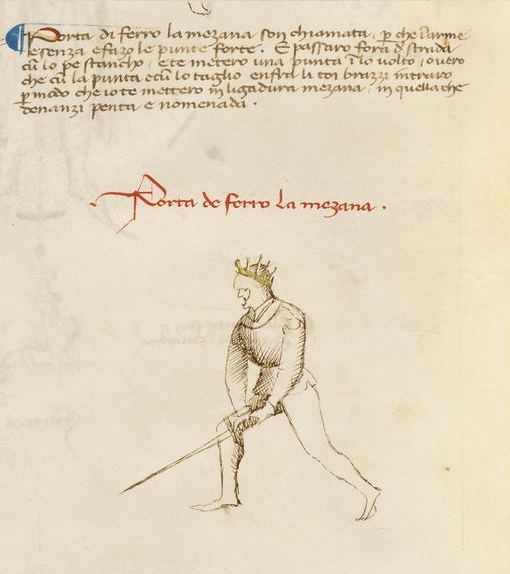 Porta di ferro la mezana son chiamata, p che l'arme
e senza e fazo le punte forte. E passaro fora d strada
cū lo pe stancho, e te metero una punta ī lo volto, overo
che cū la punta e cū lo taglio enfra li toi brazzi intraro
p modo che io te mettero in ligadura mezana, in quella che
denanzi penta e nomenada.
Porta de ferro la mezana.